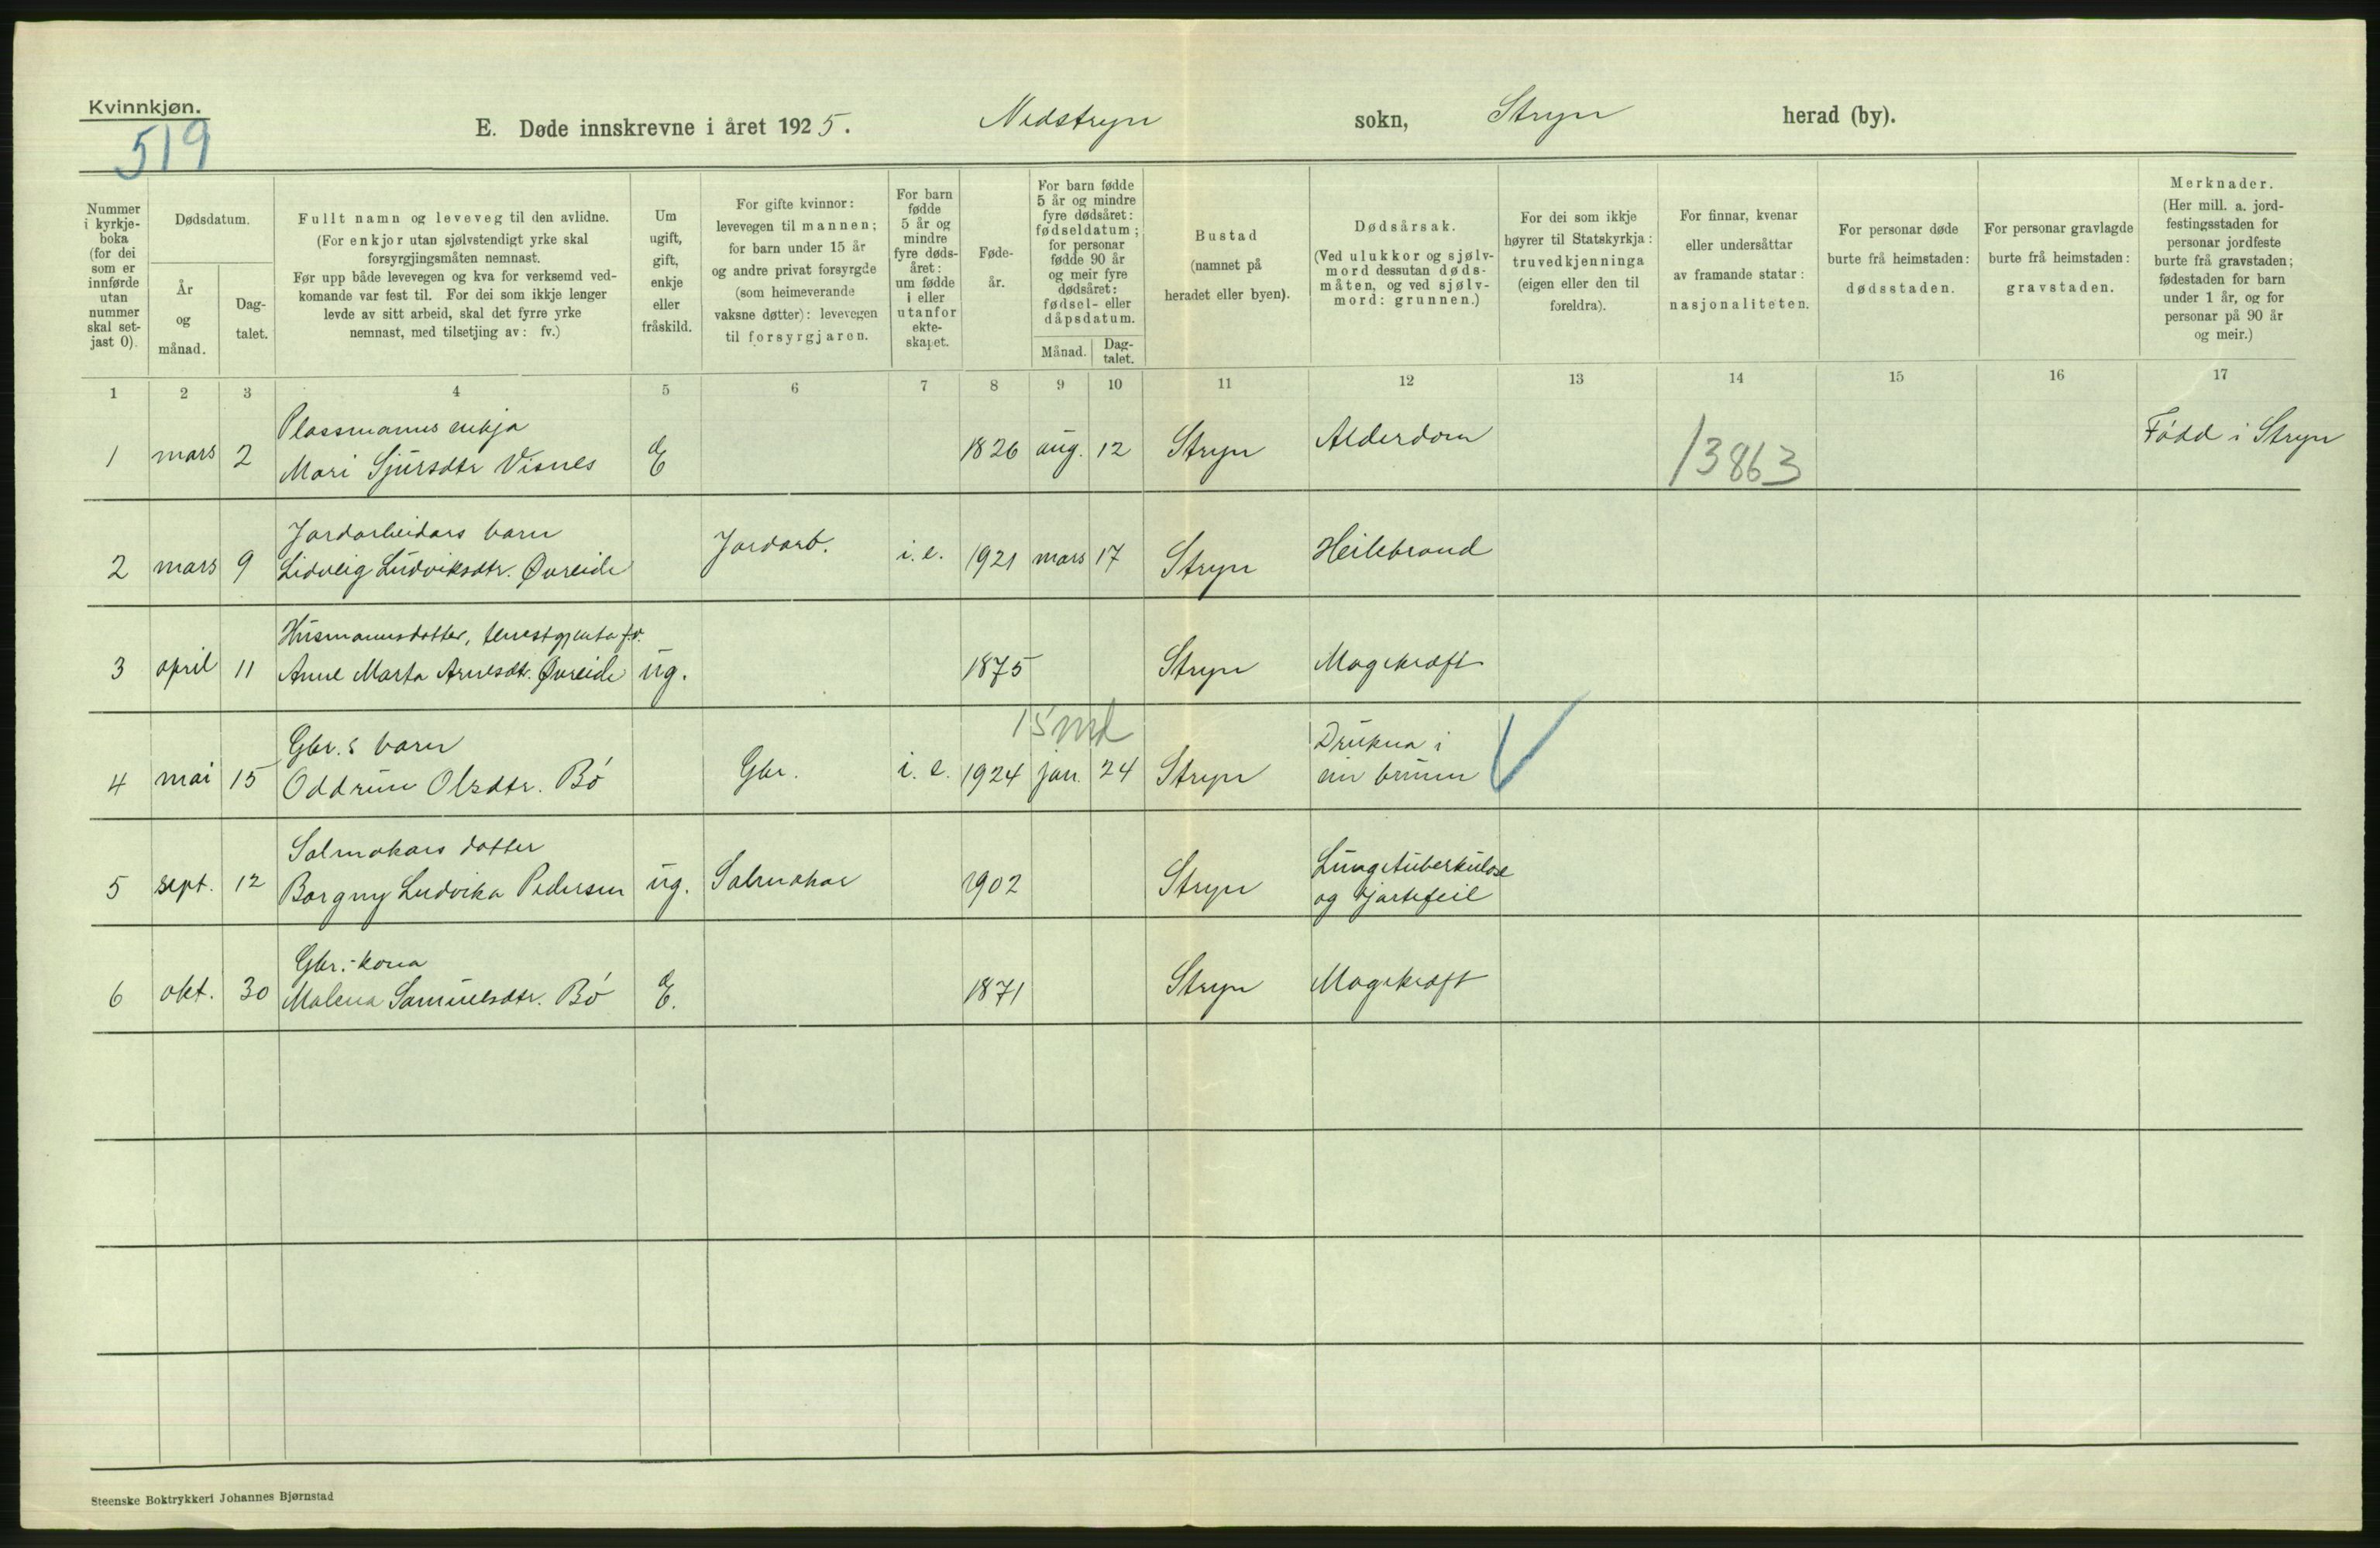 Kvinnkjøn.
519
E. Døde innskrevne i året 1925. Nedstryn sokn, Stryn herad (by).
Nummer i kyrkje-boka (for dei som er innførde utan nummer skal set-jast 0).
Dødsdatum.
År og månad.
Dag-talet.
Fullt namn og leveveg til den avlidne.
(For enkjor utan sjølvstendigt yrke skal forsyrgjingsmåten nemnast.
Før upp både levevegen og kva for verksemd ved-komande var fest til. For dei som ikkje lenger levde av sitt arbeid, skal det fyrre yrke nemnast, med tilsetjing av: fv.)
Um ugift, gift, enkje eller fråskild.
For gifte kvinnor: levevegen til mannen; for barn under 15 år og andre privat forsyrgde (som heimeverande vaksne døtter): levevegen til forsyrgjaren.
For barn fødde 5 år og mindre fyre døds-året: um fødde i eller utanfor ekte-skapet.
Føde-år.
For barn fødde 5 år og mindre fyre dødsåret: fødseldatum; for personar fødde 90 år og meir fyre dødsåret: fødsel- eller dåpsdatum.
Månad.
Dag-talet.
Bustad
(namnet på heradet eller byen).
Dødsårsak.
(Ved ulukkor og sjølv-mord dessutan døds-måten, og ved sjølv-mord: grunnen.)
For dei som ikkje høyrer til Statskyrkja: truvedkjenninga (eigen eller den til foreldra).
For finnar, kvenar eller undersåttar av framande statar: nasjonaliteten.
For personar døde burte frå heimstaden: dødsstaden.
For personar gravlagde burte frå heimstaden: gravstaden.
Merknader.
(Her mill. a. jord-festingsstaden for personar jordfeste burte frå gravstaden; fødestaden for barn under 1 år, og for personar på 90 år og meir.)
1 2 3 4 5 6 7 8 9 10 11 12 13 14 15 16 17
Plassmanns enkja
1 mars 2 Mari Sjursdtr Visnes E 1826 aug. 12 Stryn Alderdom 13863 Fødd i Stryn
Jordarbeidars barn
2 mars 9 Lidveig Ludviksdtr. Øvreide Jordarb. i. e. 1921 mars 17 Stryn Heilebrand
Husmannsdotter, tenestgjenta fv.
3 april 11 Anne Marta Arnesdtr. Øvreide ug. 1875 Stryn Magekræft
15 md
Gbr.s barn
4 mai 15 Oddrun Olsdtr. Bø Gbr. i. e. 1924 jan. 24 Stryn Drukna i
ein brunn
Salmakars dotter
5 sept. 12 Borgny Ludvika Pedersen ug. Salmakar 1902 Stryn Lungetuberkulose
og hjartefeil
Gbr.-kona
6 okt. 30 Malena Samuelsdtr. Bø E. 1871 Stryn Magekræft
Steenske Boktrykkeri Johannes Bjørnstad